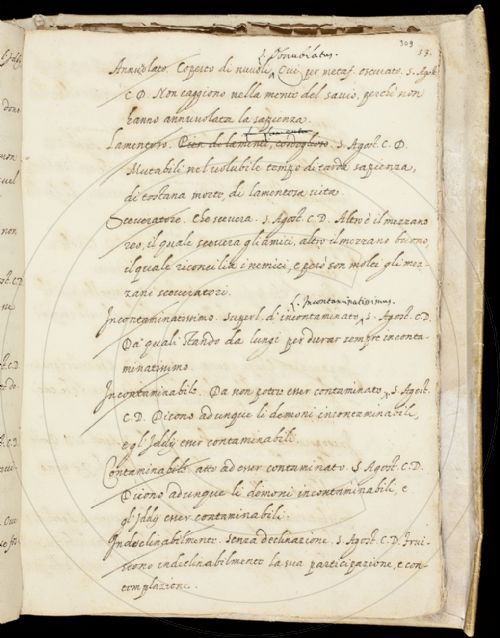 309
13.
L. Obnubilatus.
Annuvolato. Coperto di nuvoli, Qui per metaf. oscurato. S. Agost.
C.D. Non caggiono nella mente del savio, perchè non
hanno annuvolata la sapienza.
Lamentoso. Pien di lamenti, cordoglioso. S. Agost. C.D.
Mutabili nel volubile tempo di tarda sapienza,
di tostana morte, di lamentosa vita.
Sceveratore. Che scevera. S. Agost. C.D. Altro è il mezzano
reo, il quale scevera gli amici, altro il mezzano buono,
il quale riconcilia i nemici, e però son molti gli mez-
zani sceveratori.
L. Incontaminatissimus.
Incontaminatissimo. Superl. d'incontaminato. S. Agost. C.D.
Da' quali stando da lunge per durar sempre inconta-
minatissimo.
Incontaminabile. Da non poter esser contaminato. S. Agost.
C.D. Dicono adunque li demoni incontaminabili,
e gl'Iddij esser contaminabili.
Contaminabile. atto ad esser contaminato. S. Agost. C.D.
Dicono adunque li demoni incontaminabili, e
gl'Iddij esser contaminabili.
Indeclinabilmente. Senza declinazione. S. Agost. C.D. Frui-
scono indeclinabilmente la sua participazione, e con-
templazione.